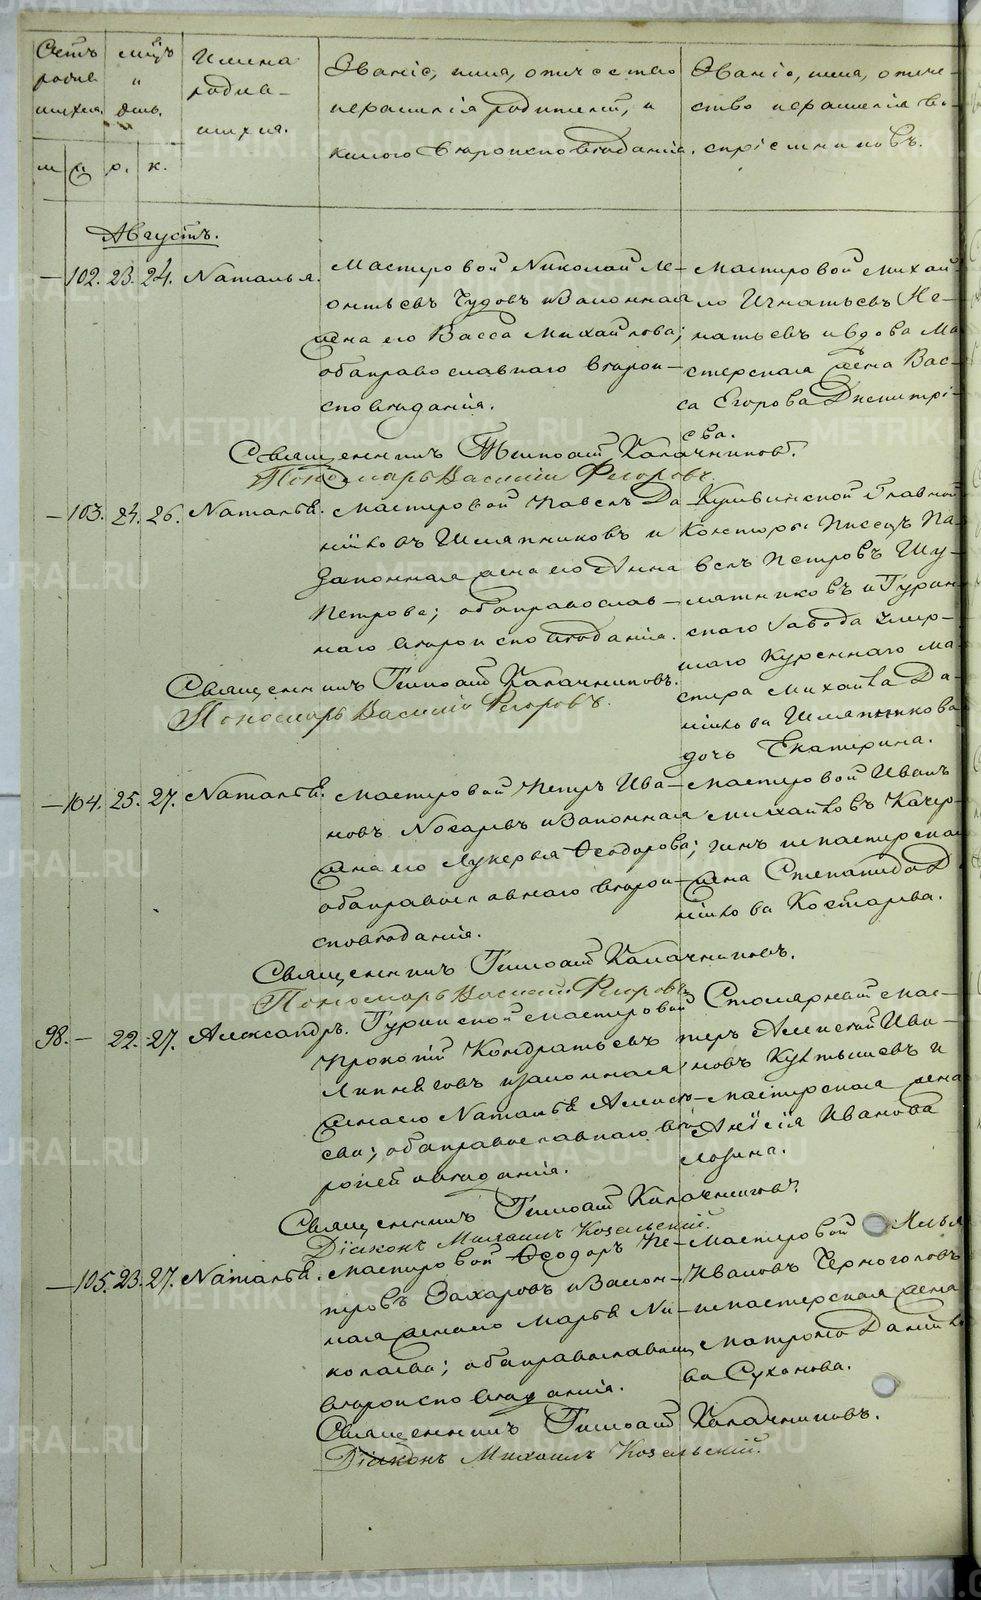 Счетъ родившихся.
мѣсяцъ и день.
Имена родившихся.
Званіе, имя, отчество и фамилія родителей, и какого вѣроисповѣданія.
Званіе, имя, отчество и фамилія воспріемниковъ.
м. ж. р. к.
Августъ.
— 102. 23. 24. Наталья.
Мастеровой Николай Ле-
онтьевъ Чудовъ и законная
жена его Васса Михайлова;
оба православнаго вѣрои-
сповѣданія.
Мастеровой Михаи-
ло Игнатьевъ
и вдова Ма-
стерская жена Вас-
са Егорова Дмитрі-
ева.
Священникъ Тимоѳей Калачниковъ.
Пономарь Василій Флоровъ.
— 103. 24. 26. Наталья.
Мастеровой Павелъ Да-
ниловъ Шляпниковъ и
законная жена его Анна
Петрова; оба православ-
наго вѣроисповѣданія.
Кушвинской Главной
Конторы Писецъ Па-
велъ Петровъ
и Турин-
скаго завода умер-
шаго Куреннаго Ма-
стера Михаила Да-
нилова Шляпникова
дочь Екатерина.
Священникъ Тимоѳей Калачниковъ.
Пономарь Василій Флоровъ.
— 104. 25. 27. Наталья.
Мастеровой Петръ Ива-
новъ Носаревъ и законная
жена его Лукерья Ѳеодорова;
оба православнаго вѣрои-
сповѣданія.
Мастеровой Иванъ
Михайловъ
и мастерская
жена Степанида Да-
нилова Костарева.
Священникъ Тимоѳей Калачниковъ.
Пономарь Василій Флоровъ.
98. — 22. 27. Александръ.
Туринской мастеровой
Прокопій Кондратьевъ
и законная
жена его Наталья Алексѣ-
ева; оба православнаго вѣ-
роисповѣданія.
Столярный мас-
теръ Алексѣй Ива-
новъ и
мастерская жена
Анисія Иванова
Лозина.
Священникъ Тимоѳей Калачниковъ.
Діаконъ Михаилъ Козельскій.
— 105. 23. 27. Наталья.
Мастеровой Ѳеодоръ Пе-
тровъ Захаровъ и закон-
ная жена его Марья Ни-
колаева; оба православнаго
вѣроисповѣданія.
Мастеровой Илья
Ивановъ Черноголовъ
и мастерская жена
Матрона Данило-
ва Суханова.
Священникъ Тимоѳей Калачниковъ.
Діаконъ Михаилъ Козельскій.
METRIKI.GASO-URAL.RU